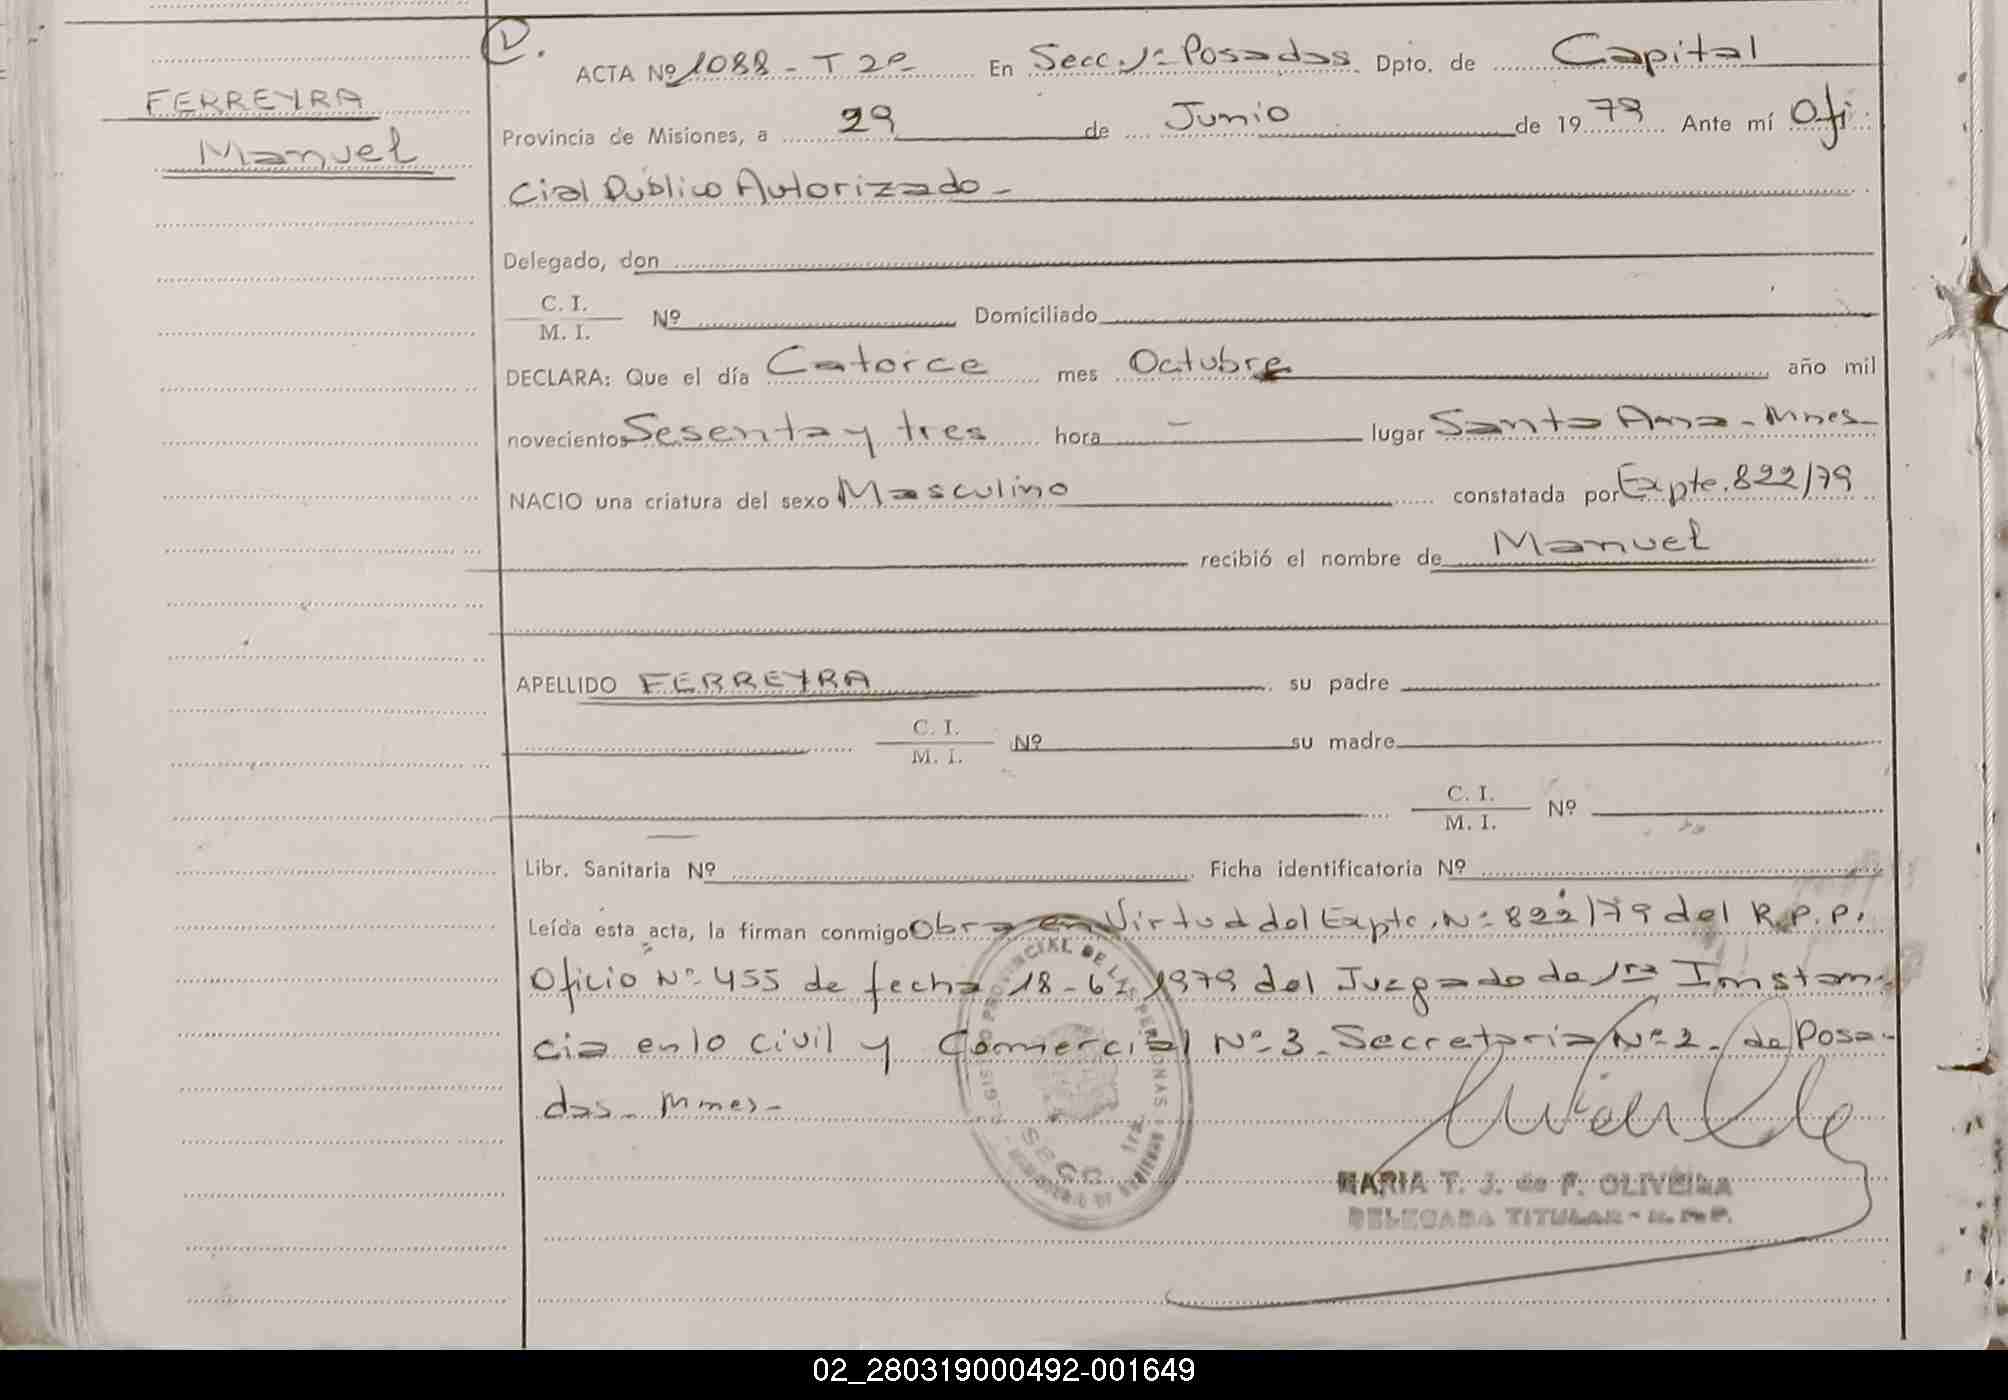 FERREYRA
Manuel
ACTA Nº 1088 - T 2º En Secc. 1ª Posadas Dpto. de Capital
Provincia de Misiones, a 29 de Junio de 1979 Ante mí Ofi
cial Público Autorizado -
Delegado, don
C. I.
M. I. Nº Domiciliado
DECLARA: Que el día Catorce mes Octubre año mil
novecientos Sesenta y tres hora - lugar Santa Ana - Mnes -
NACIO una criatura del sexo Masculino constatada por Expte. 822/79
recibió el nombre de Manuel
APELLIDO FERREYRA su padre
C. I.
M. I. Nº su madre
C. I.
M. I. Nº
Libr. Sanitaria Nº Ficha identificatoria Nº
Leída esta acta, la firman conmigo Obra en Virtud del Expte. Nº 822/79 del R.P.P.
Oficio Nº 455 de fecha 18-6-1979 del Juzgado de 1ra Instan-
cia en lo civil y Comercial Nº 3. Secretaria Nº 2. de Posa-
das. Mnes -
PROVINCIAL DE LAS PERSONAS
SECC. 1ra.
MARIA T. J. de F. OLIVEIRA
DELEGADA TITULAR - R. P. P.
02_280319000492-001649